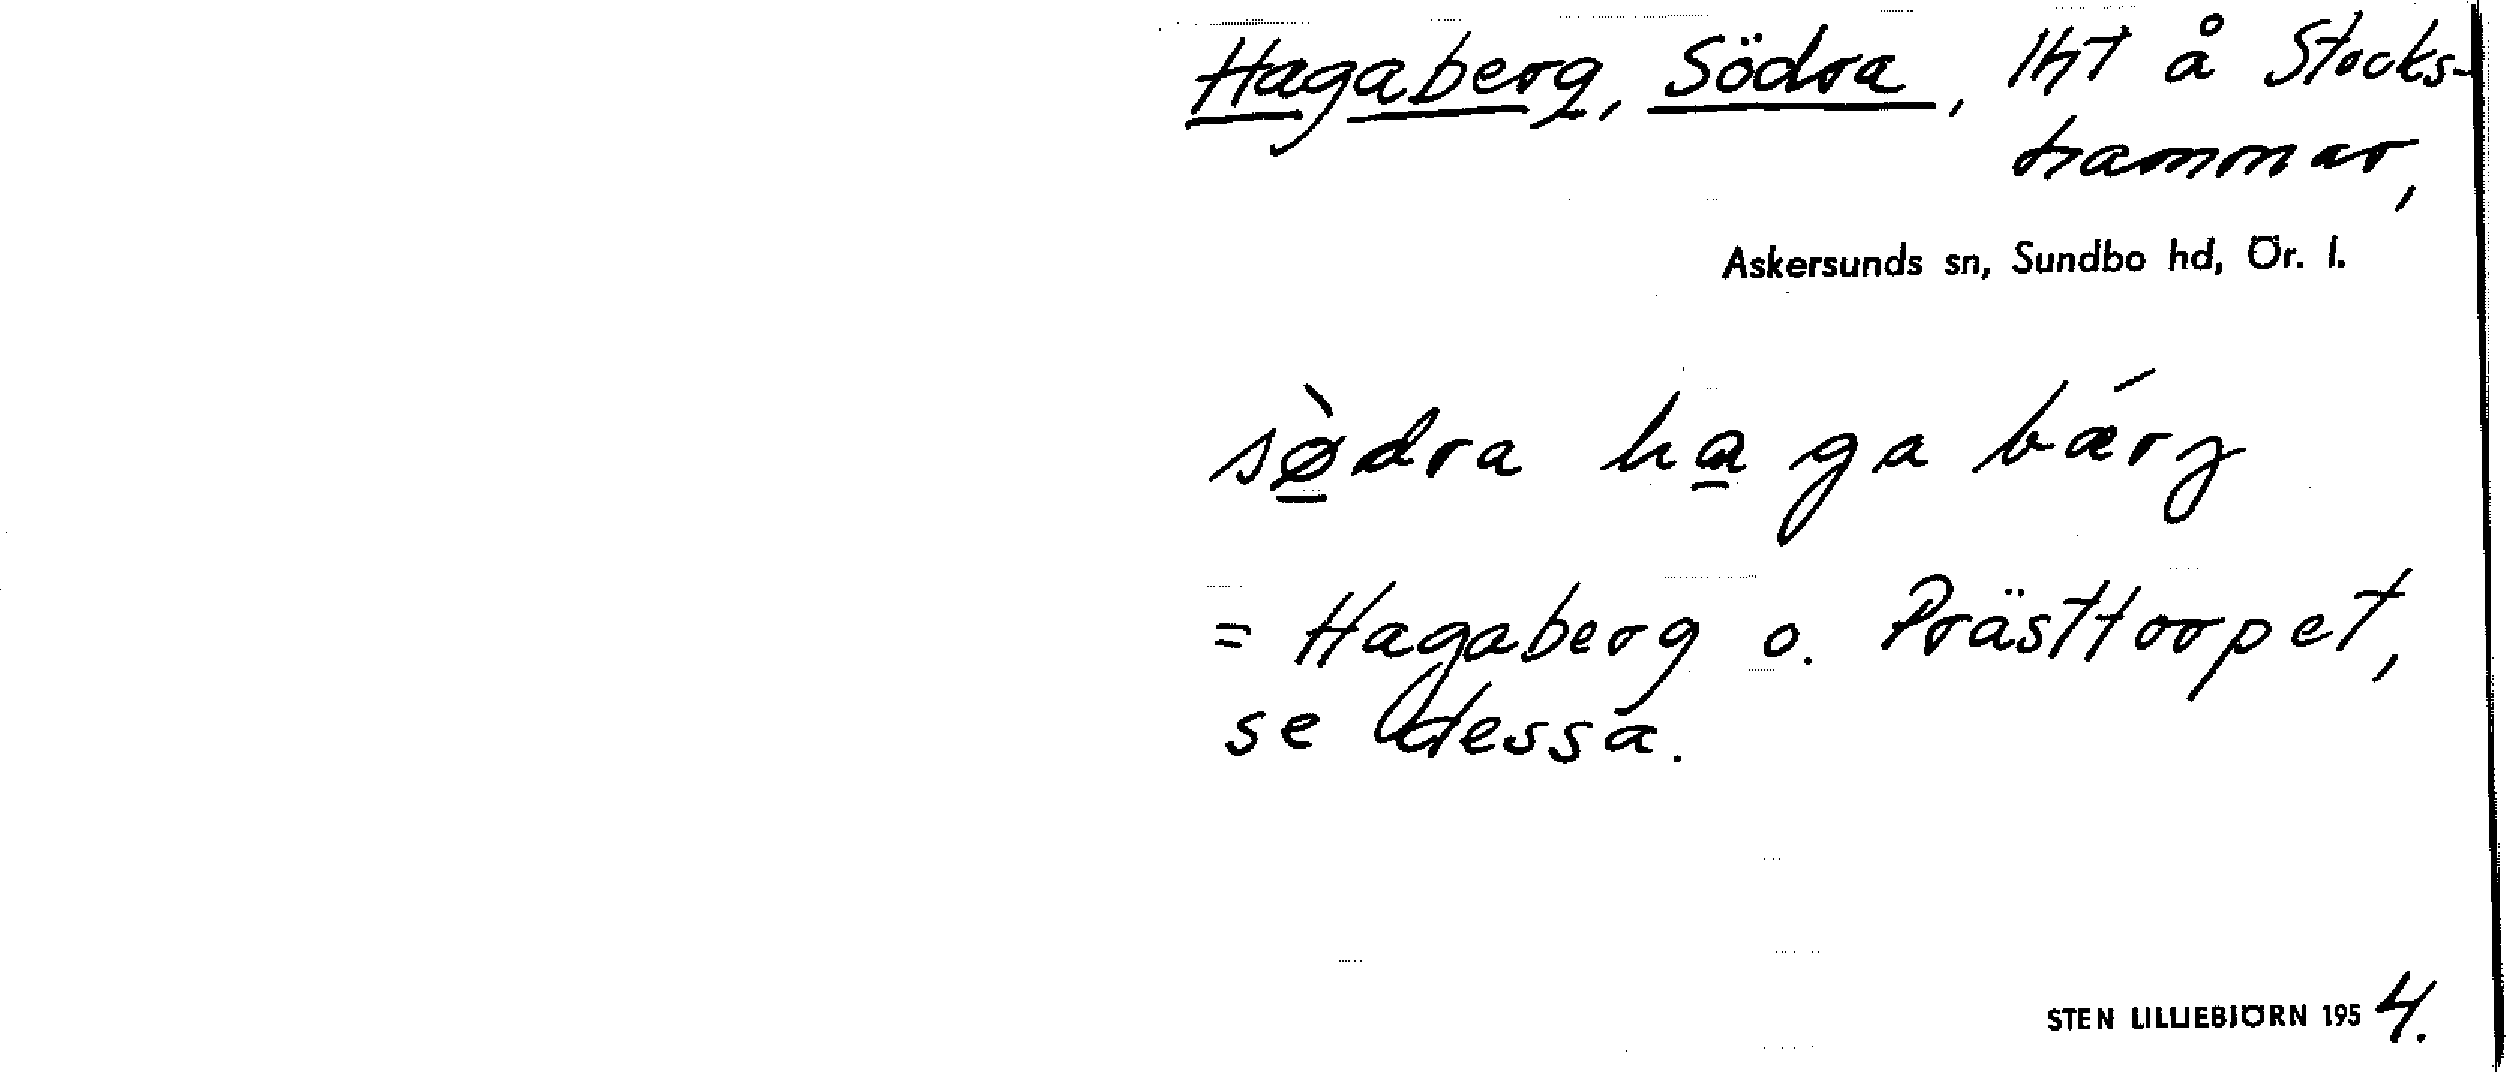 Hagaberg, Södra, lht å Stocks-
hammar,
Askersunds sn, Sundbo hd, Ör. l.
sø̀dra haga bærg
= Hagaberg o. Prästtorpet,
se dessa.
STEN LILLIEBJÖRN 1954.